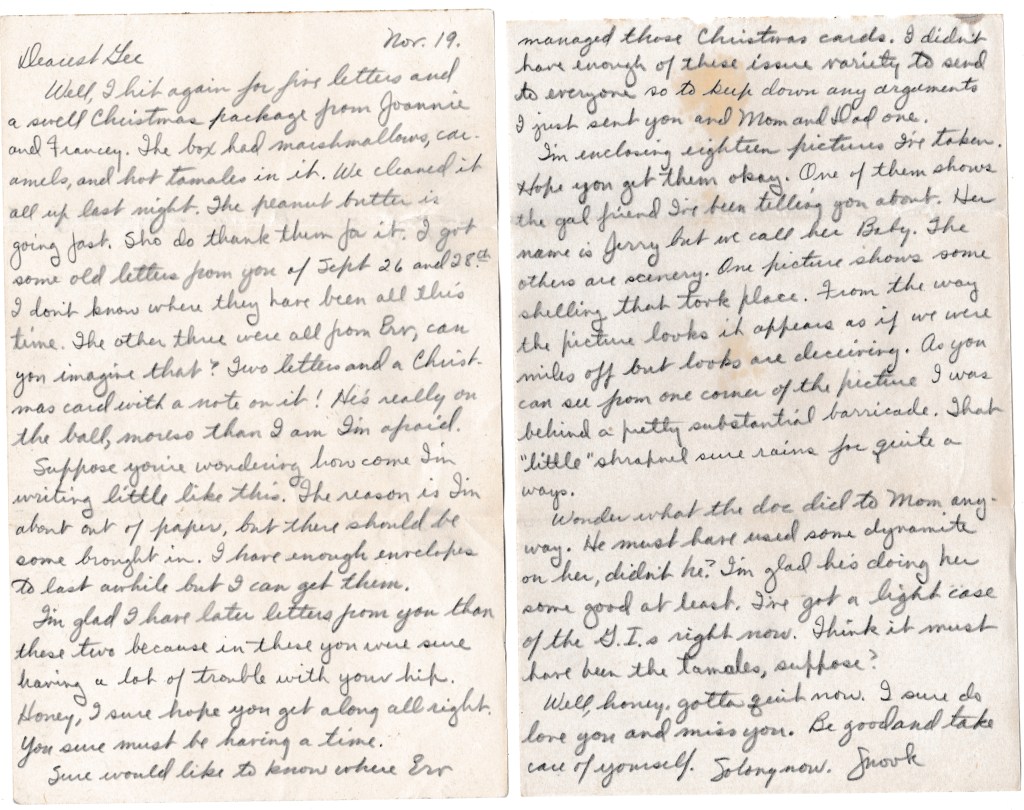 Nov. 19.
Dearest Gee
Well, I hit again for five letters and
a swell Christmas package from Joannie
and Francey. The box had marshmallows, car-
amels, and hot tamales in it. We cleaned it
all up last night. The peanut butter is
going fast. Sho do thank them for it. I got
some old letters from you of Sept 26 and 28th.
I don't know where they have been all this
time. The other three were all from Erv, can
you imagine that? Two letters and a Christ-
mas card with a note on it! He's really on
the ball, moreso than I am I'm afraid.
Suppose you're wondering how come I'm
writing little like this. The reason is I'm
about out of paper, but there should be
some brought in. I have enough envelopes
to last awhile but I can get them.
I'm glad I have later letters from you than
these two because in these you were sure
having a lot of trouble with your hip.
Honey, I sure hope you get along all right.
You sure must be having a time.
Sure would like to know where Erv
managed those Christmas cards. I didn't
have enough of these issue variety to send
to everyone so to keep down any arguments
I just sent you and Mom and Dad one.
I'm enclosing eighteen pictures I've taken.
Hope you get them okay. One of them shows
the gal friend I've been telling you about. Her
name is Jerry but we call her Baby. The
others are scenery. One picture shows some
shelling that took place. From the way
the picture looks it appears as if we were
miles off but looks are deceiving. As you
can see from one corner of the picture I was
behind a pretty substantial barricade. That
"little" shrapnel sure rains for quite a
ways.
Wonder what the doc did to Mom any-
way. He must have used some dynamite
on her, didn't he? I'm glad he's doing her
some good at least. I've got a light case
of the G.I.s right now. Think it must
have been the tamales, suppose?
Well, honey, gotta quit now. I sure do
love you and miss you. Be good and take
care of yourself. So long now. Snook